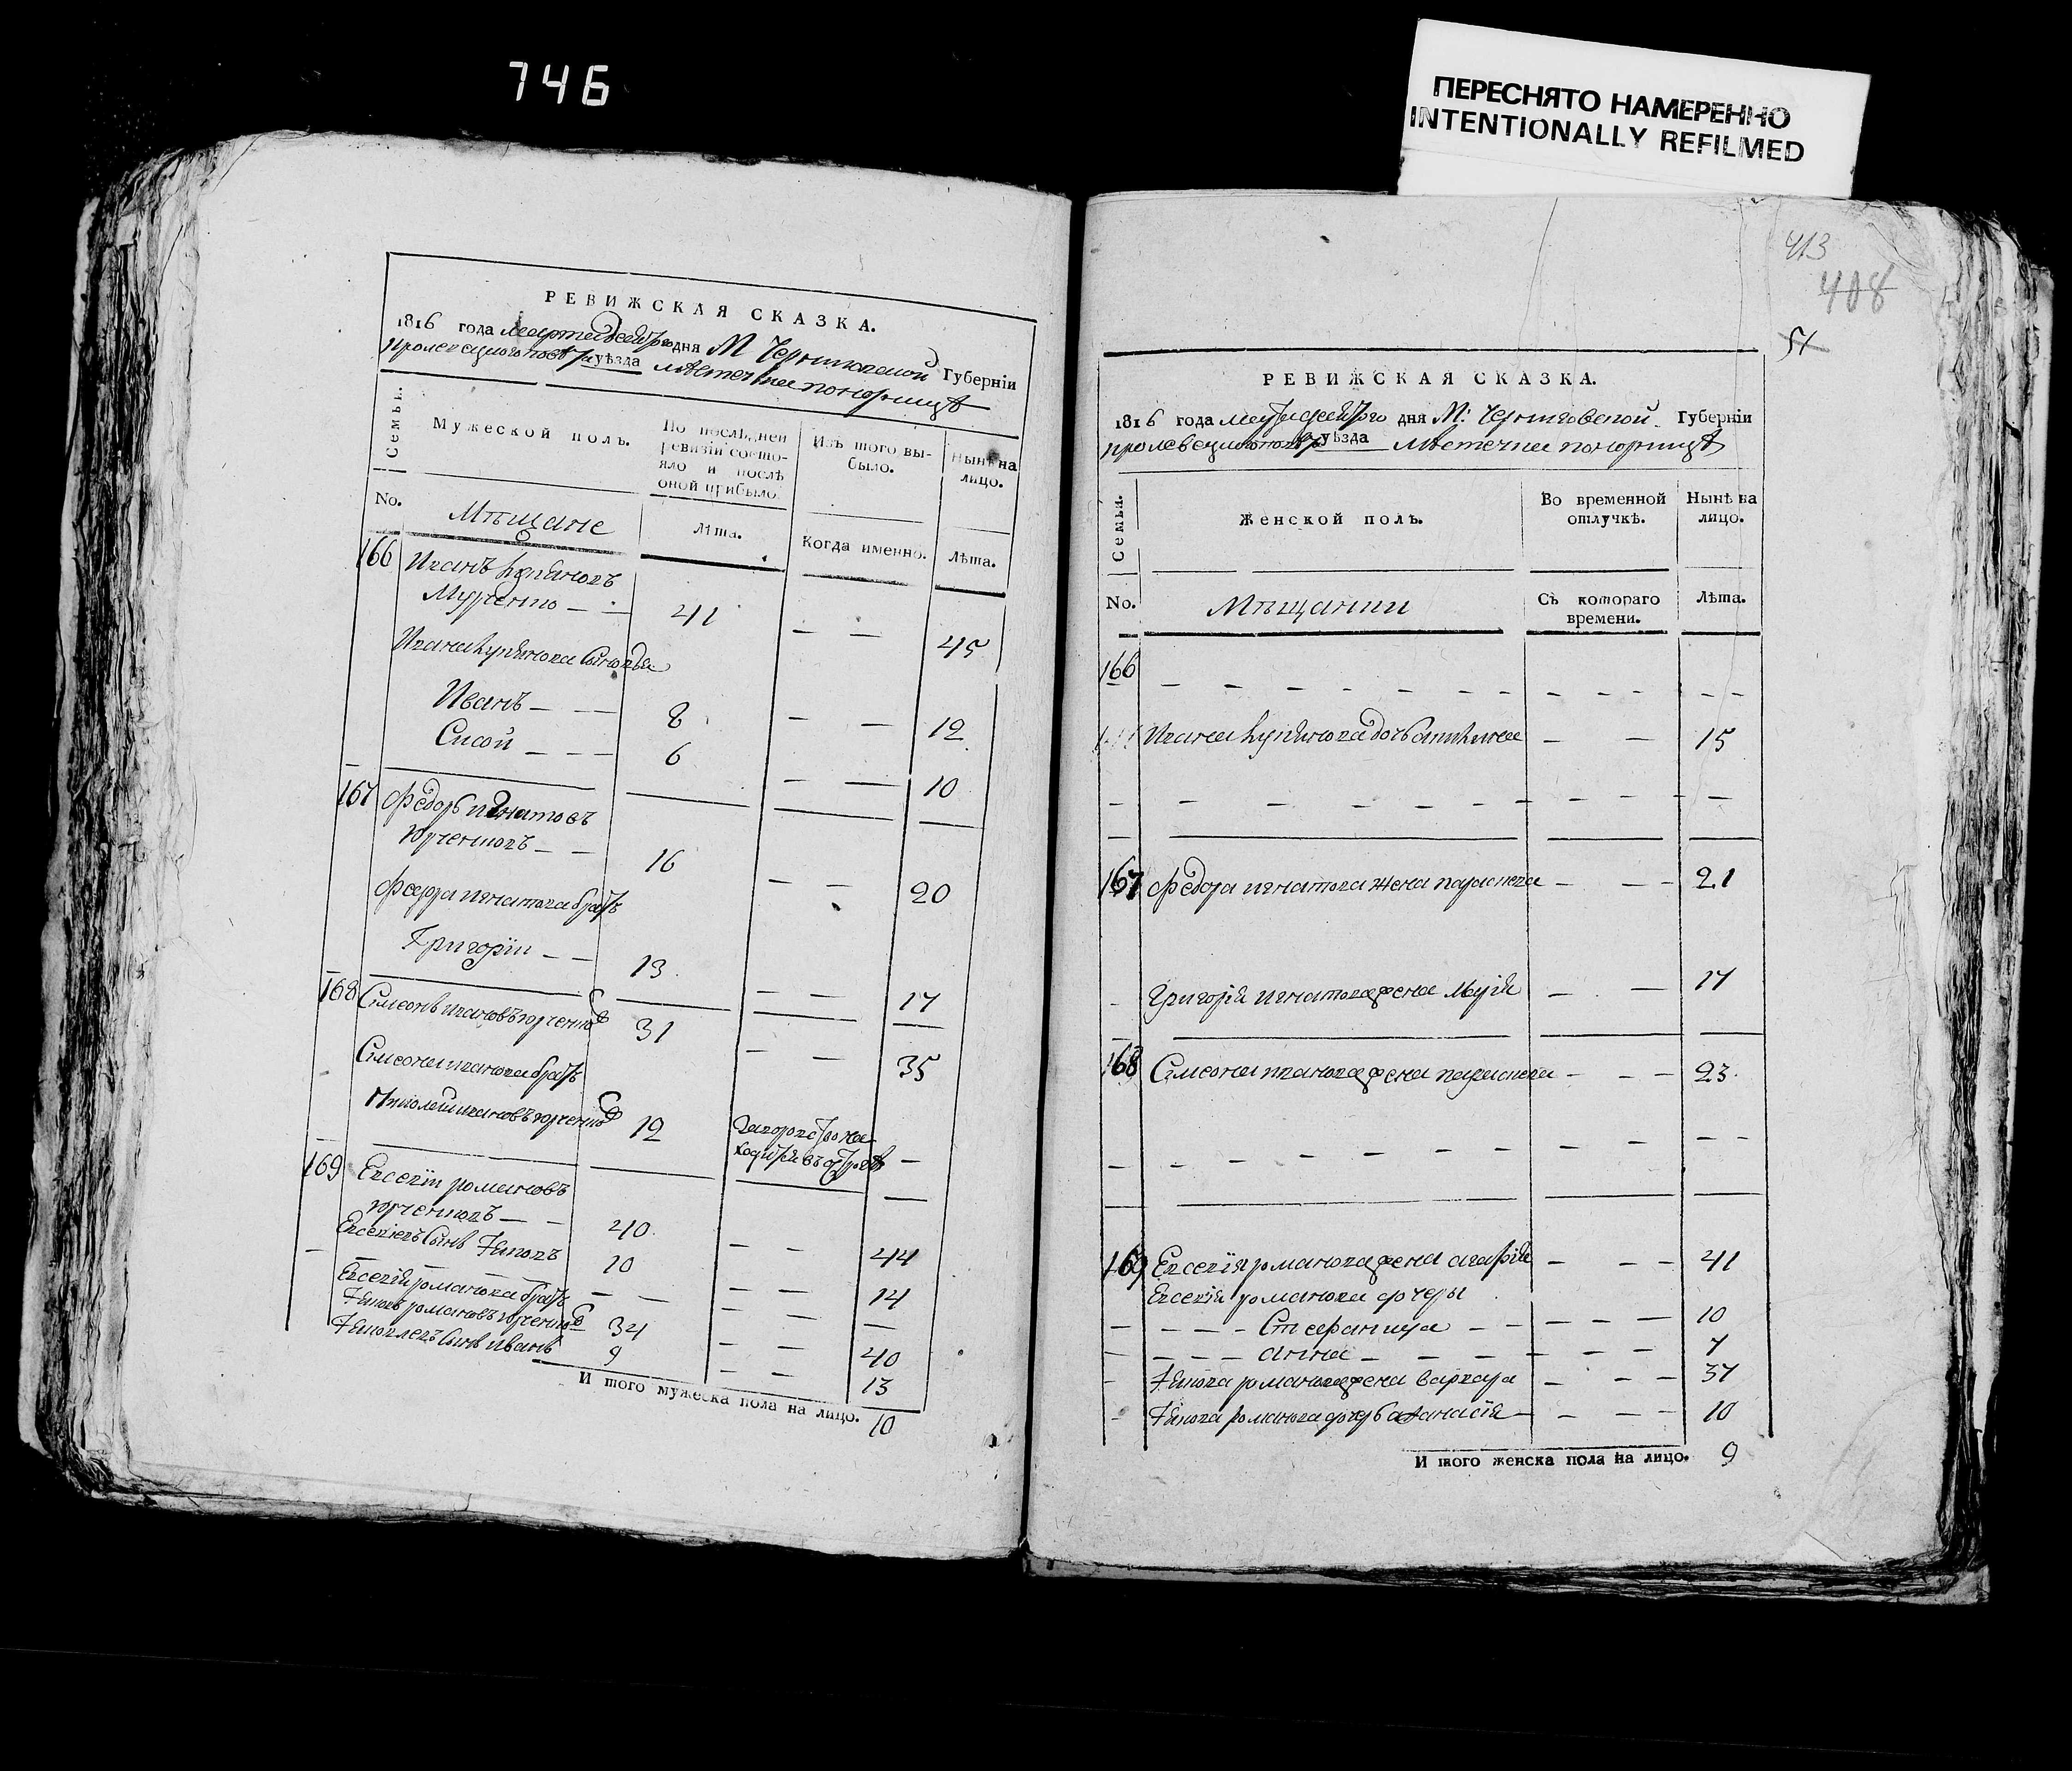 746
ПЕРЕСНЯТО НАМЕРЕННО
INTENTIONALLY REFILMED
РЕВИЖСКАЯ СКАЗКА.
1816 года дня М Черниговской Губернїи
уѣзда мѣстечка понорницѣ
Семьи.
Мужеской полъ.
По послѣдней
ревизїи состо-
яло и послѣ
оной прибыло.
Изъ того вы-
было.
Нынѣ на
лицо.
No.
Мѣщане
Лѣта.
Когда именно.
Лѣта.
166 Иванъ
41 — — 45
Ивана сыновья
Иванъ — — — 8 — — 12
Сисой — — — 6 — — 10
167 Федоръ игнатовъ
юрченковъ — — 16 — — 20
Федора игнатова братъ
Григорїи — — 13 — — 17
168 Симеонъ ивановъ юрченко 31 — — 35
Симеона иванова братъ
ивановъ юрченко 12 —
169 Евсевїи романовъ
юрченковъ — — 40 — — 44
сынъ 10 — — 14
Евсевїя романова братъ
романовъ юрченко 34 — — 40
сынъ иванъ 9 — — 13
И того мужеска пола на лицо. 10
413
408
51
РЕВИЖСКАЯ СКАЗКА.
1816 года дня М: Черниговской Губернїи
уѣзда мѣстечка понорницѣ
Семьи.
Женской полъ.
Во временной
отлучкѣ.
Нынѣ на
лицо.
No.
Мѣщанки
Съ котораго
времени.
Лѣта.
166
Ивана дочь — — 15
167 Федора игнатова жена параскева — — — 21
Григорїя игнатова жена марїя — — 17
168 Симеона иванова жена параскева — — — 23
169 Евсевїя романова жена агафїя — — — 41
Евсевїя романова дочеры
10
анна 7
романова жена варвара — — — 37
романова дочерь афанасїя — — — 10
И того женска пола на лицо. 9